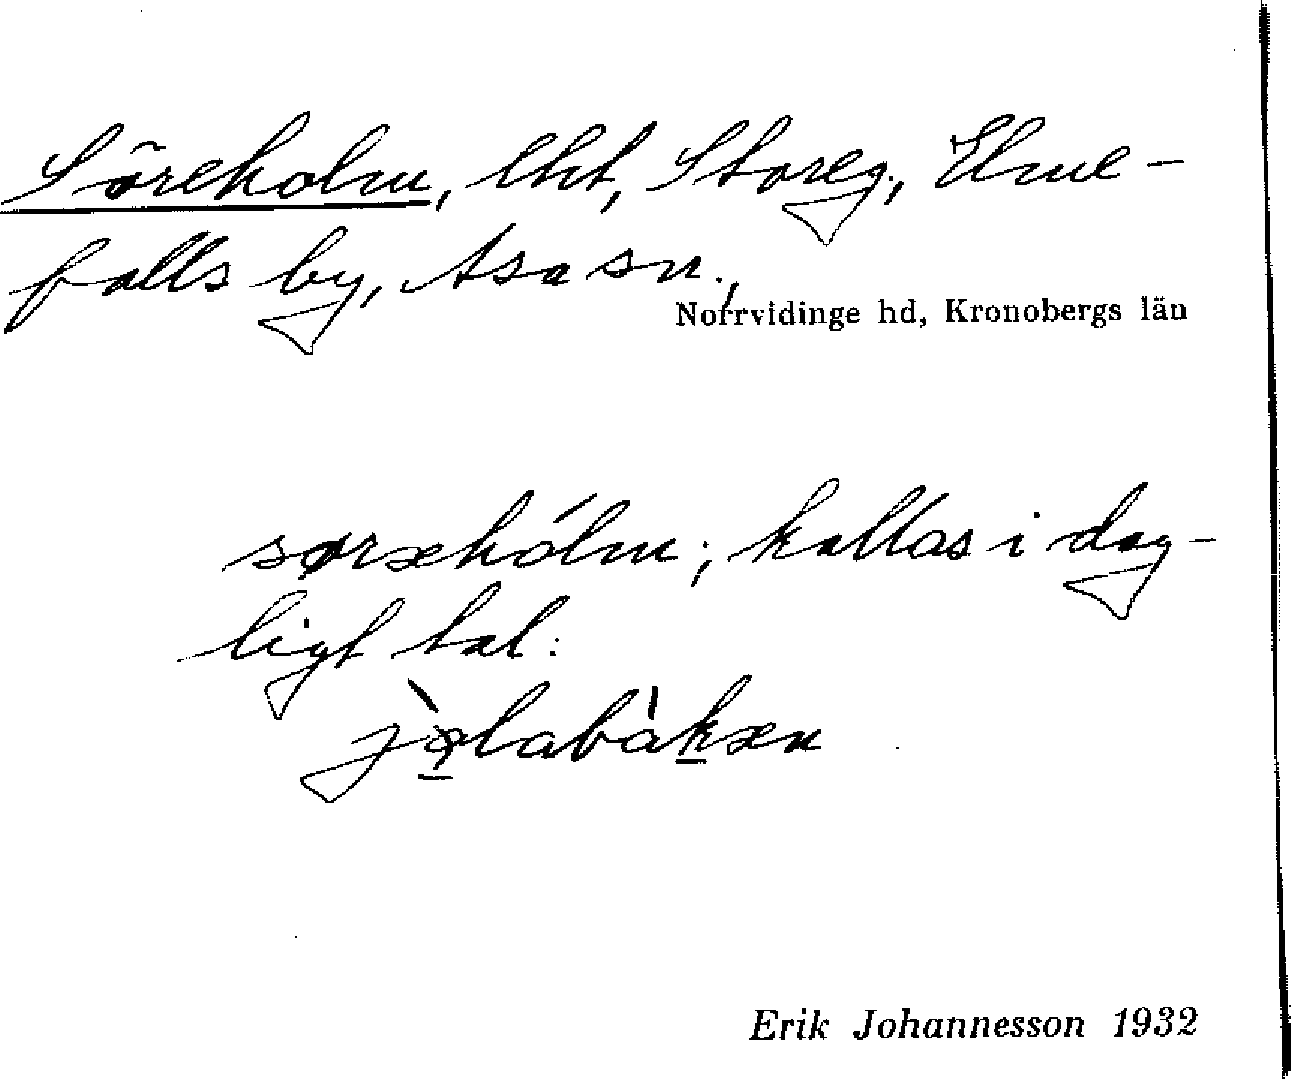 Söreholm, lht, Storeg., Elme-
falls by, Asa sn.,
Norrvidinge hd, Kronobergs län
sørxhólm; kallas i dag-
ligt tal:
Erik Johannesson 1932